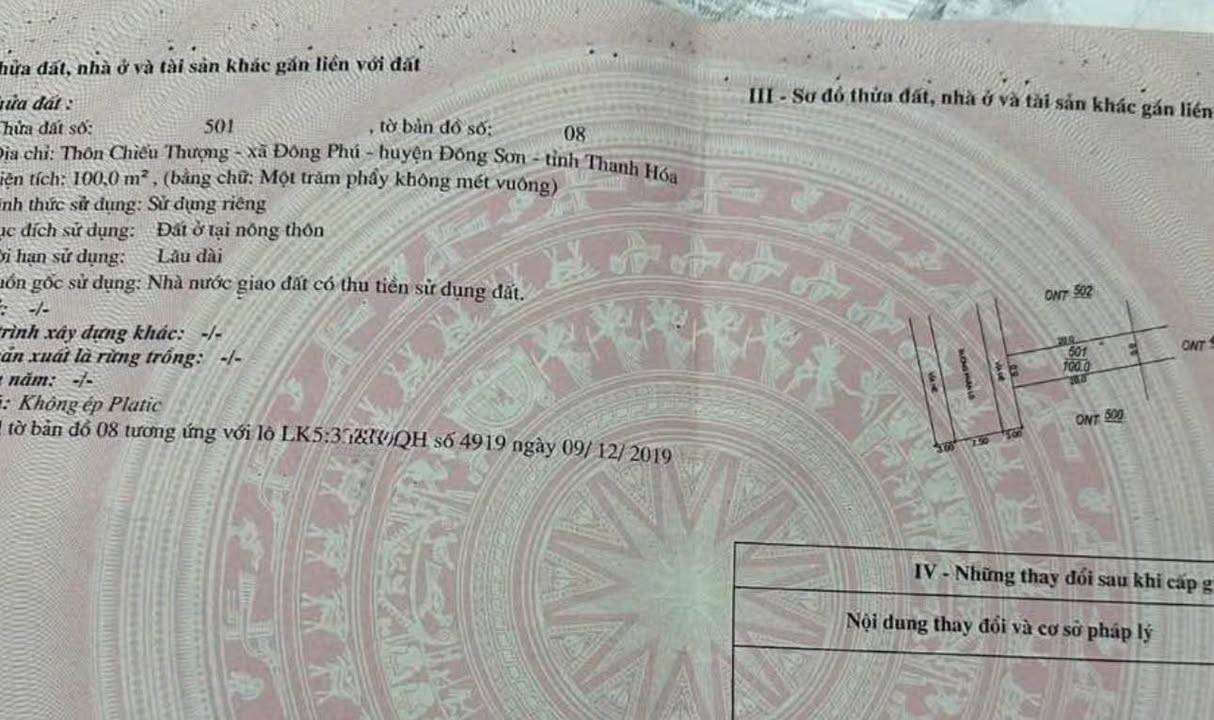 hửa đất, nhà ở và tài sản khác gắn liền với đất
hửa đất :
Thửa đất số: 501 , tờ bản đồ số: 08
Địa chỉ: Thôn Chiếu Thượng - xã Đông Phú - huyện Đông Sơn - tỉnh Thanh Hóa
iện tích: 100,0 m² , (bằng chữ: Một trăm phẩy không mét vuông)
ình thức sử dụng: Sử dụng riêng
ục đích sử dụng: Đất ở tại nông thôn
ời hạn sử dụng: Lâu dài
uồn gốc sử dụng: Nhà nước giao đất có thu tiền sử dụng đất.
: -/-
trình xây dựng khác: -/-
ản xuất là rừng trồng: -/-
năm: -/-
: Không ép Platic
tờ bản đồ 08 tương ứng với lô QH số 4919 ngày 09/ 12/ 2019
III - Sơ đồ thửa đất, nhà ở và tài sản khác gắn liền
ONT 502
20.0
501
100.0
20.0
ONT
ONT 500
VỈA HÈ
VỈA HÈ
3.00
7.50
3.00
IV - Những thay đổi sau khi cấp g
Nội dung thay đổi và cơ sở pháp lý